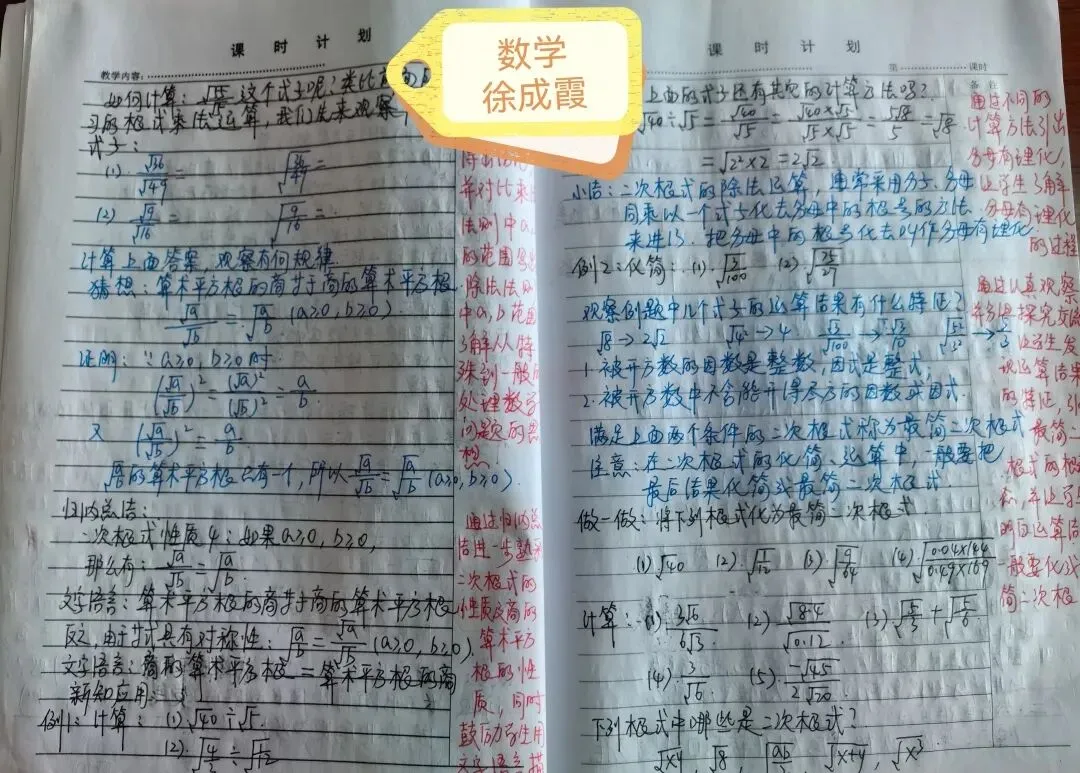 数学
徐成霞
课 时 计 划
教学内容:
如何计算: 这个式子呢?类比
习的根式乘法运算,我们先来观察
式子:
(1) √36/√49 = √(36/49) =
(2) √9/√16 = √(9/16) =
计算上面答案,观察有何规律
猜想:算术平方根的商等于商的算术平方根
√a/√b = √(a/b) (a≥0, b≥0)
证明:∵a≥0, b≥0时.
(√a/√b)² = (√a)²/(√b)² = a/b
又 (√a/√b)² = a/b
的算术平方根只有一个,所以√a/√b = √(a/b) (a≥0, b≥0).
归纳总结:
二次根式性质4:如果a≥0, b≥0,
那么有: √a/√b = √(a/b)
文字语言:算术平方根的商等于商的算术平方根
反之,由于等式具有对称性: √(a/b) = √a/√b (a≥0, b≥0)
文字语言:商的算术平方根=算术平方根的商
新知应用:
例1:计算: (1) √40÷√5.
(2).
并对比乘法
法则中a
的范围
除法法则
中a, b范围
了解从特
殊到一般的
处理数学
问题的思
想.
通过归纳总
结进一步熟
二次根式的
性质及商的
算术平方
根的性
质,同时
鼓励学生用
文字语言描
课 时 计 划
第 课时
备 注
上面的式子还有其它的计算方法吗?
√40÷√5 = √40/√5 = √40×√5/√5×√5 = 5√8/5 = √8
= √(2²×2) = 2√2.
小结:二次根式的除法运算,通常采用分子、分母
同乘以一个式子化去分母中的根号的方法
来进行.把分母中的根号化去叫作分母有理化.
例2:化简:(1)√(3/100) (2)√(75/27)
观察例题中几个式子的运算结果有什么特征?
√8→2√2
1.被开方数的因数是整数,因式是整式,
2.被开方数中不含能开得尽方的因数或因式
满足上面两个条件的二次根式称为最简二次根式
注意:在二次根式的化简、运算中,一般要把
最后结果化简成最简二次根式
做一做:将下列根式化为最简二次根式.
(1)√40 (2)√(1/12) (3)√(9/64) (4)√(0.04×144/0.49×169)
计算:(1) 3√6/6√3 (2) √8.4/√0.12 (3)
(4) 3/√6 (5) -√45/2√20
下列根式中哪些是二次根式?
√xy, √8, √(x+y),
通过不同的
计算方法引出
分母有理化,
让学生了解
分母有理化
的过程
通过认真观察
探究交流
让学生发
现运算结果
的特征,引
最简二
根式的概
念,并让学
的运算结
一般要化成
简二次根